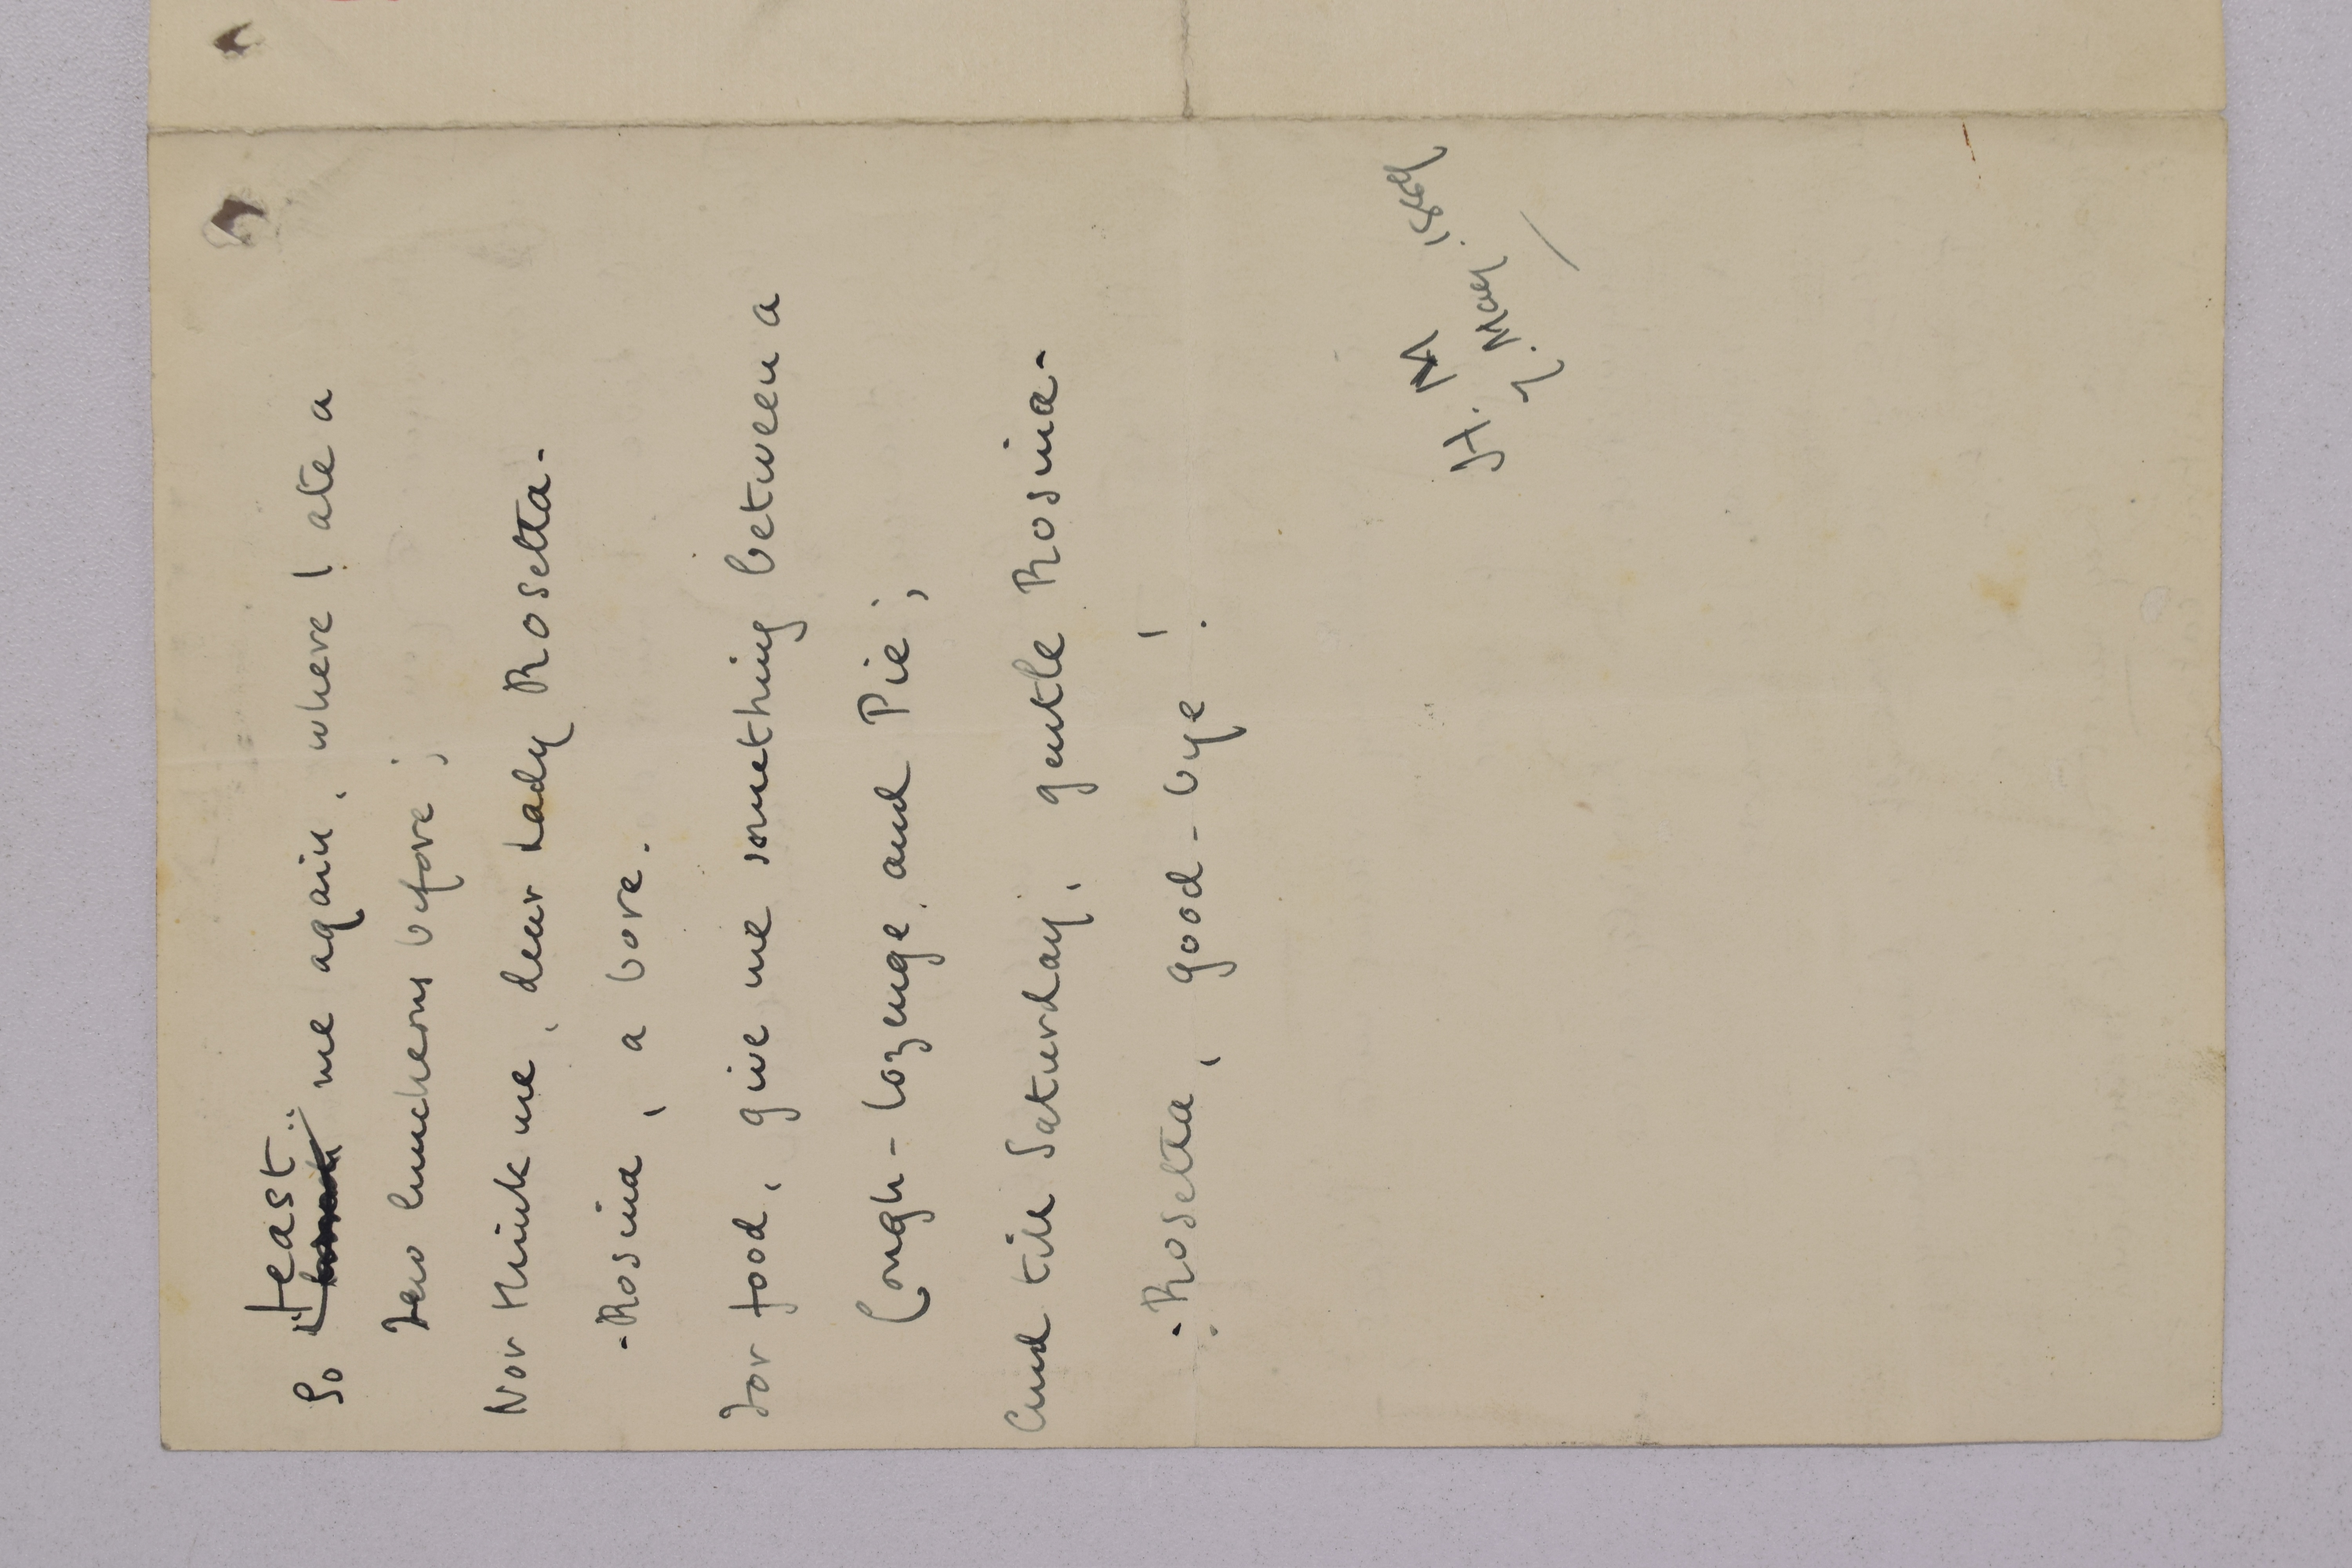 So feast me again, where I ate a
Few luncheons before ;
Nor think me, dear Lady Rosetta-
-Rosina, a bore.
For food, give me something between a
Cough-lozenge, and Pie ;
And till Saturday, gentle Rosina-
-Rosetta, good-bye !
May